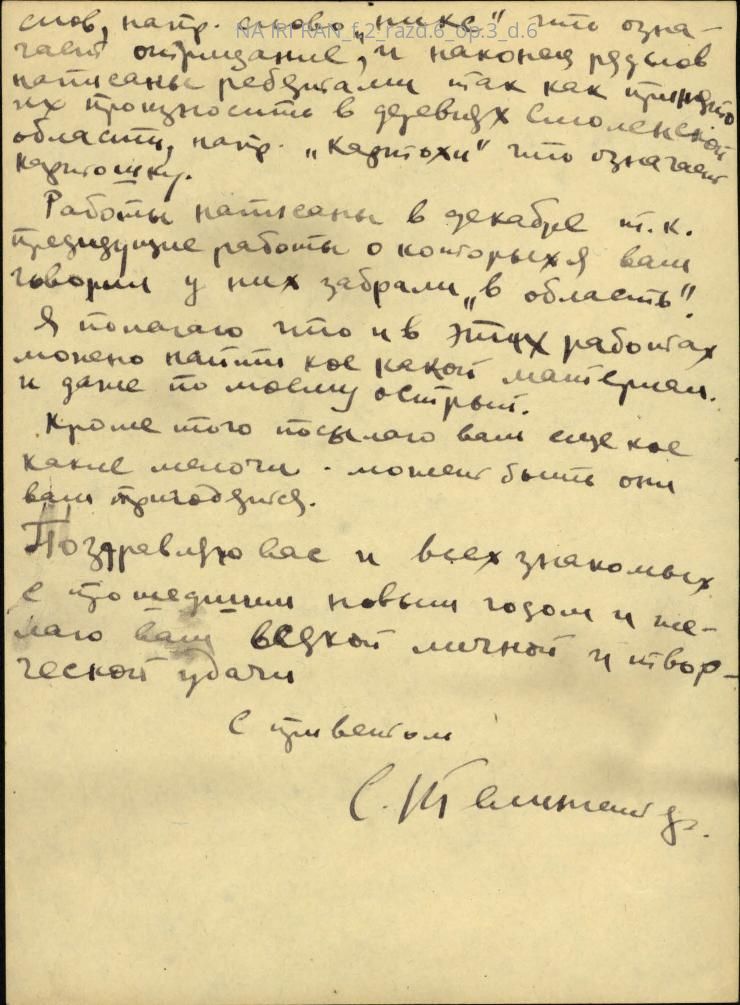 слов, напр. слово „нике" что озна-
NA IRI RAN_f.2_razd.6_op.3_d.6
чает отрицание, и наконец ряд слов
написаны ребятами так как принято
их произносить в деревнях Смоленской
области, напр. „Картохи" что означает
картошку.
Работы написаны в декабре т.к.
предидущие работы о которых я вам
говорил у них забрали „в область".
Я полагаю что и в этих работах
можно найти кое какой материал.
и даже по моему острый.
Кроме того посылаю вам еще кое
какие мелочи. может быть они
вам пригодятся.
Поздравляю вас и всех знакомых
с прошедшим новым годом и же-
лаю вам всякой личной и твор-
ческой удачи
С приветом
С.